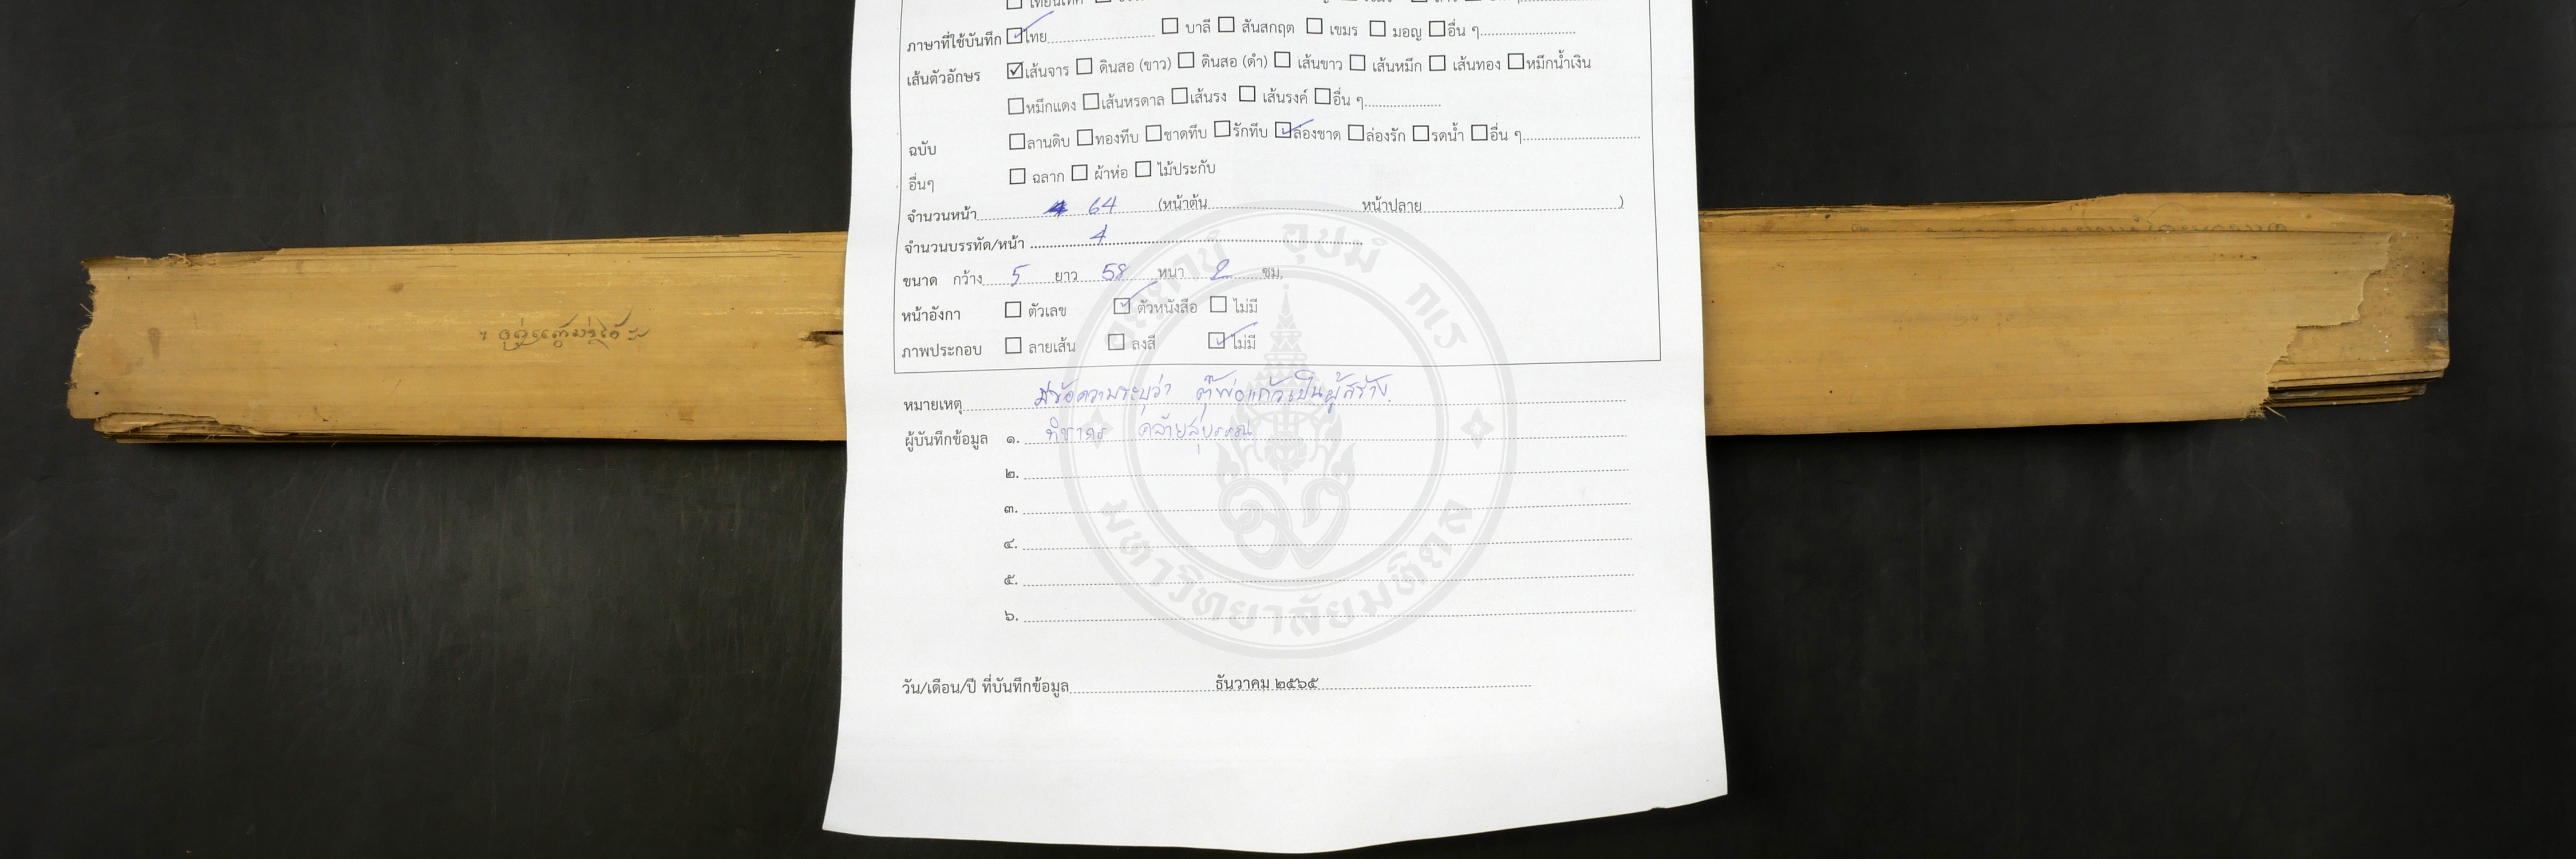 ภาษาที่ใช้บันทึก ☑ไทย.................... ☐ บาลี ☐ สันสกฤต ☐ เขมร ☐ มอญ ☐อื่น ๆ....................
เส้นตัวอักษร ☑เส้นจาร ☐ ดินสอ (ขาว) ☐ ดินสอ (ดำ) ☐ เส้นขาว ☐ เส้นหมึก ☐ เส้นทอง ☐หมึกน้ำเงิน
☐หมึกแดง ☐เส้นหรดาล ☐เส้นรง ☐ เส้นรงค์ ☐อื่น ๆ....................
ฉบับ ☐ลานดิบ ☐ทองทึบ ☐ชาดทึบ ☐รักทึบ ☑ล่องชาด ☐ล่องรัก ☐รดน้ำ ☐อื่น ๆ....................
อื่นๆ ☐ ฉลาก ☐ ผ้าห่อ ☐ ไม้ประกับ
จำนวนหน้า 64 (หน้าต้น.................... หน้าปลาย....................)
จำนวนบรรทัด/หน้า 4
ขนาด กว้าง 5 ยาว 58 หนา 2 ซม.
หน้าอังกา ☐ ตัวเลข ☑ ตัวหนังสือ ☐ ไม่มี
ภาพประกอบ ☐ ลายเส้น ☐ ลงสี ☑ ไม่มี
หมายเหตุ มีข้อความระบุว่า ตุ๊พ่อแก้วเป็นผู้สร้าง
ผู้บันทึกข้อมูล ๑. คล้ายสุบรรณ
๒.
๓.
๔.
๕.
๖.
วัน/เดือน/ปี ที่บันทึกข้อมูล ธันวาคม ๒๕๖๕
อตฺตานํ อุปมํ กเร
มหาวิทยาลัยมหิดล